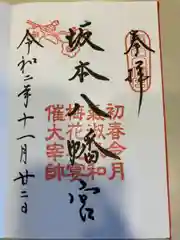 奉拝
坂本八幡宮
初春令月
梅花宴
催大宰帥
令和二年十一月廿二日